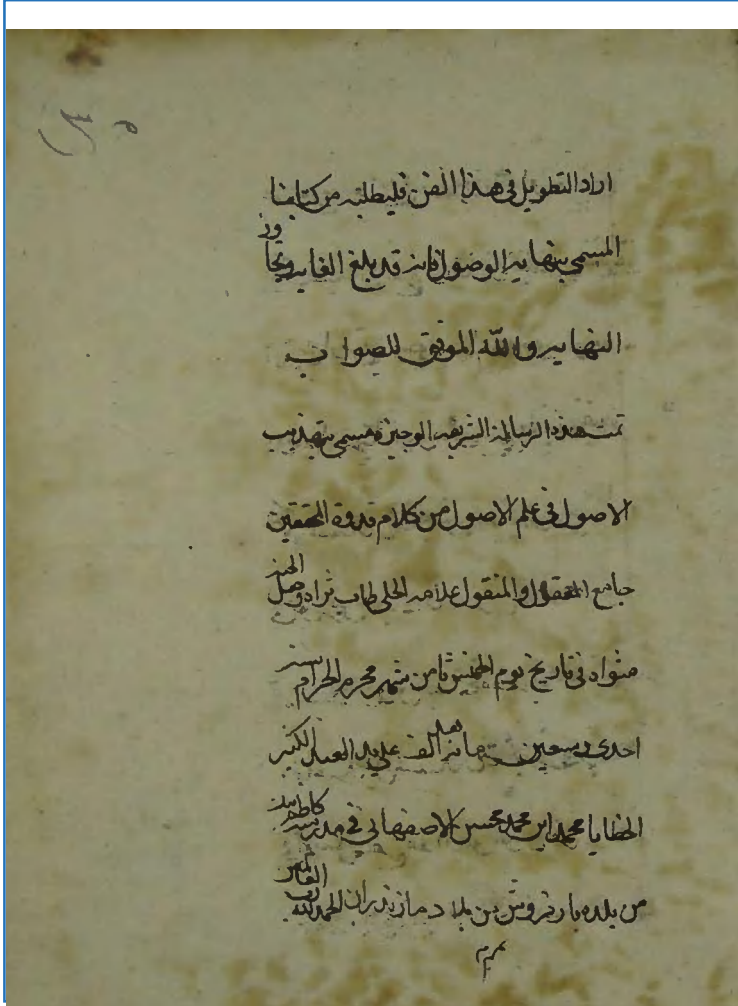 اراد التطويل فى هذا الفن فليطلبه من كتابنا
المسمى بنهايه الوصول فانه قد بلغ الغايه وتجاوز
النهايه والله الموفق للصواب
تمت هذه الرساله الشريفه الوجيزه مسمى بتهذيب
الاصول فى علم الاصول من كلام قدوة المحققين
جامع المعقول والمنقول علامه الحلى طاب ثراه وجعل الجنه
مثواه فى تاريخ يوم الخميس ثامن شهر محرم الحرام سنه
احدى و بعد الف على يد العبد الكثير
الخطايا محمد ابن محمد محسن الاصفهانى فى مدرسه كاظم بيك
من بلده بارفروش من بلاد مازندران الحمد لله رب العالمين